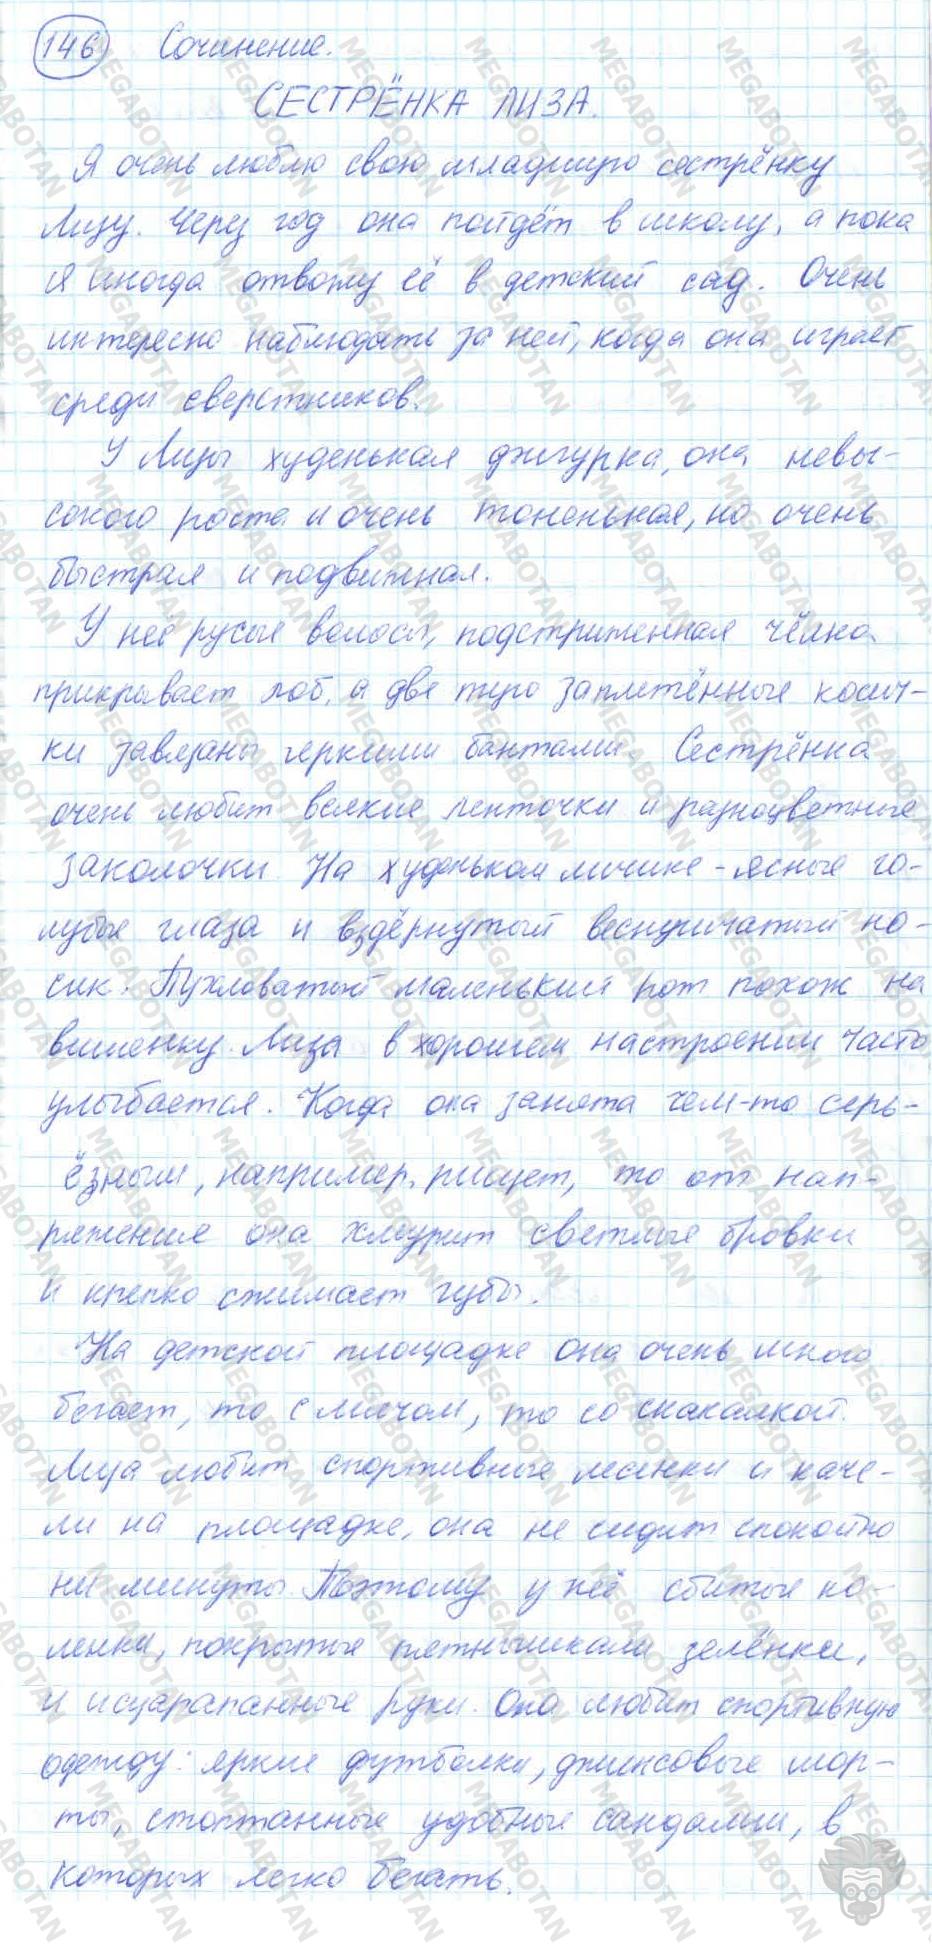 146 Сочинение.
СЕСТРЁНКА ЛИЗА.
Я очень люблю свою младшую сестрёнку
Лизу. Через год она пойдёт в школу, а пока
я иногда отвожу её в детский сад. Очень
интересно наблюдать за ней, когда она играет
среди сверстников.
У Лизы худенькая фигурка, она невы-
сокого роста и очень тоненькая, но очень
быстрая и подвижная.
У неё русые волосы, подстриженная чёлка
прикрывает лоб, а две туго заплетённые косич-
ки завязаны яркими бантами. Сестрёнка
очень любит всякие ленточки и разноцветные
заколочки. На худеньком личике - ясные го-
лубые глаза и вздёрнутый веснушчатый но-
сик. Пухловатый маленький рот похож на
вишенку. Лиза в хорошем настроении часто
улыбается. Когда она занята чем-то серь-
ёзным, например, рисует, то от нап-
ряжения она хмурит светлые бровки
и крепко сжимает губы.
На детской площадке она очень много
бегает, то с мячом, то со скакалкой.
Лиза любит спортивные лесенки и каче-
ли на площадке, она не сидит спокойно
ни минуты. Поэтому у неё сбитые ко-
ленки, покрытые пятнышками зелёнки,
и исцарапанные руки. Она любит спортивную
одежду: яркие футболки, джинсовые шор-
ты, стоптанные удобные сандалии, в
которых легко бегать.
MEGABOTAN